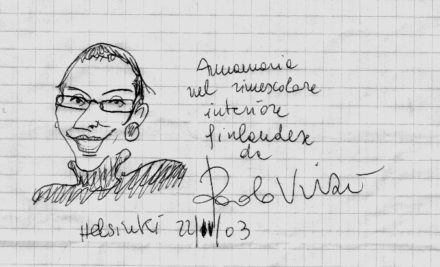 Annamaria
nel rimescolare
interiore
finlandese
da
Paolo
Helsinki 22/IV/03